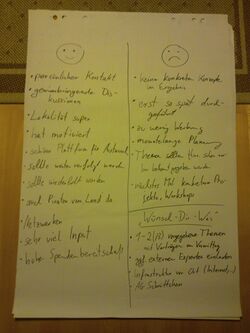 • persönlicher Kontakt
• gewinnbringende Dis-
kussionen
• Lokalität super
• hat motiviert
• schöne Plattform für Austausch
• sollte weiter verfolgt werden
• sollte wiederholt werden
• auch Piraten vom Land da
• Netzwerken
• sehr viel Input
• hohe Spendenbereitschaft
• keine konkreten Konzepte
im Ergebnis
• erst so spät durch-
geführt
• zu wenig Werbung
• monatelange Planung
• Themen sollten schon vor
gegeben werden
• nächstes Mal konkretere Pro-
jekte, Workshops
Wünsch-Dir-Was
• 1-2 (/3) vorgegebene Themen
mit Vorträgen am Vormittag
• ggf. externen Experten einladen
• Infrastruktur vor Ort (Internet,..)
• AG Schnittchen